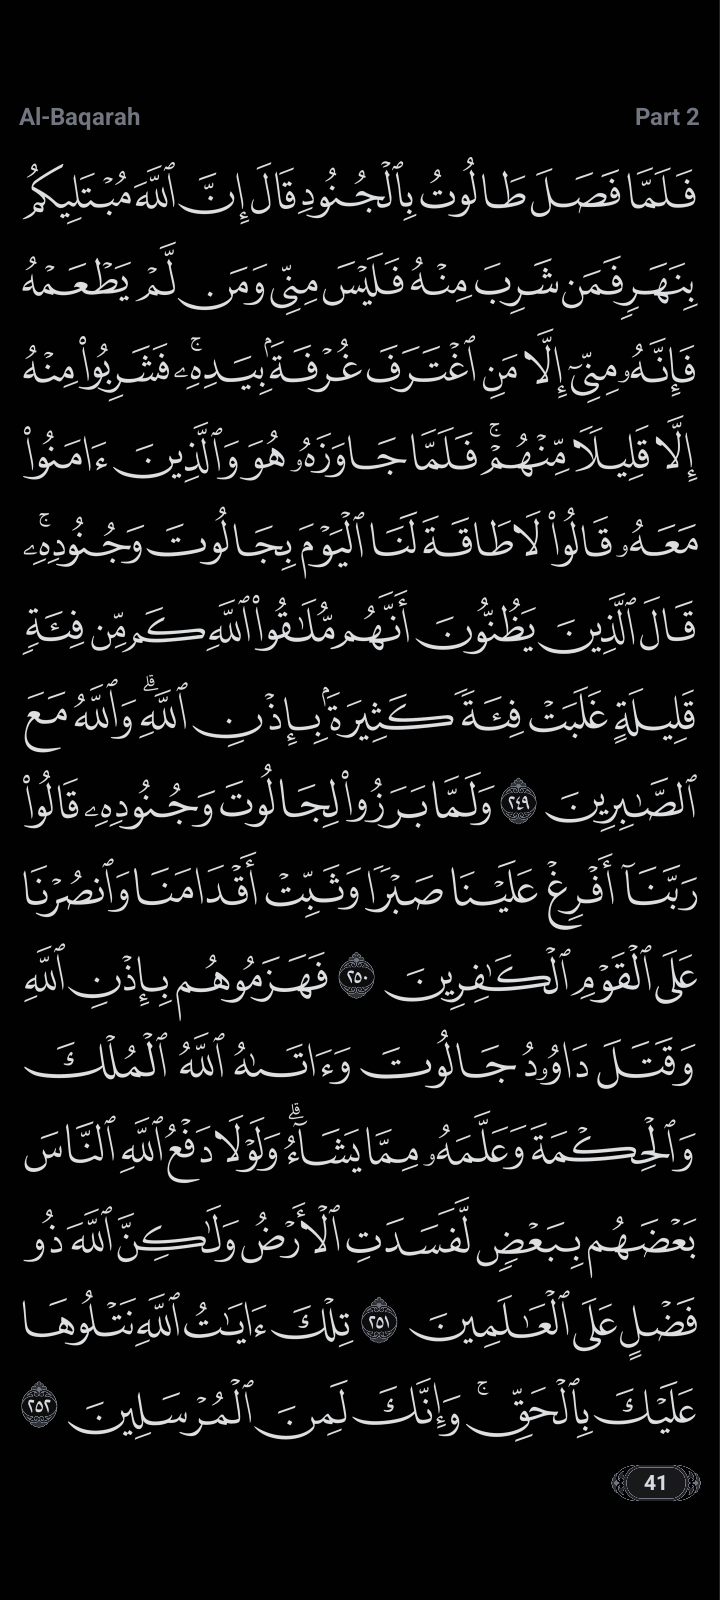 Al-Baqarah
Part 2
فَلَمَّا فَصَلَ طَالُوتُ بِٱلْجُنُودِ قَالَ إِنَّ ٱللَّهَ مُبْتَلِيكُم
بِنَهَرٍ فَمَن شَرِبَ مِنْهُ فَلَيْسَ مِنِّى وَمَن لَّمْ يَطْعَمْهُ
فَإِنَّهُۥ مِنِّىٓ إِلَّا مَنِ ٱغْتَرَفَ غُرْفَةًۢ بِيَدِهِۦ ۚ فَشَرِبُوا۟ مِنْهُ
إِلَّا قَلِيلًا مِّنْهُمْ ۚ فَلَمَّا جَاوَزَهُۥ هُوَ وَٱلَّذِينَ ءَامَنُوا۟
مَعَهُۥ قَالُوا۟ لَا طَاقَةَ لَنَا ٱلْيَوْمَ بِجَالُوتَ وَجُنُودِهِۦ ۚ
قَالَ ٱلَّذِينَ يَظُنُّونَ أَنَّهُم مُّلَٰقُوا۟ ٱللَّهِ كَم مِّن فِئَةٍ
قَلِيلَةٍ غَلَبَتْ فِئَةً كَثِيرَةًۢ بِإِذْنِ ٱللَّهِ ۗ وَٱللَّهُ مَعَ
ٱلصَّٰبِرِينَ ٢٤٩ وَلَمَّا بَرَزُوا۟ لِجَالُوتَ وَجُنُودِهِۦ قَالُوا۟
رَبَّنَآ أَفْرِغْ عَلَيْنَا صَبْرًا وَثَبِّتْ أَقْدَامَنَا وَٱنصُرْنَا
عَلَى ٱلْقَوْمِ ٱلْكَٰفِرِينَ ٢٥٠ فَهَزَمُوهُم بِإِذْنِ ٱللَّهِ
وَقَتَلَ دَاوُۥدُ جَالُوتَ وَءَاتَىٰهُ ٱللَّهُ ٱلْمُلْكَ
وَٱلْحِكْمَةَ وَعَلَّمَهُۥ مِمَّا يَشَآءُ ۗ وَلَوْلَا دَفْعُ ٱللَّهِ ٱلنَّاسَ
بَعْضَهُم بِبَعْضٍ لَّفَسَدَتِ ٱلْأَرْضُ وَلَٰكِنَّ ٱللَّهَ ذُو
فَضْلٍ عَلَى ٱلْعَٰلَمِينَ ٢٥١ تِلْكَ ءَايَٰتُ ٱللَّهِ نَتْلُوهَا
عَلَيْكَ بِٱلْحَقِّ ۚ وَإِنَّكَ لَمِنَ ٱلْمُرْسَلِينَ ٢٥٢
41